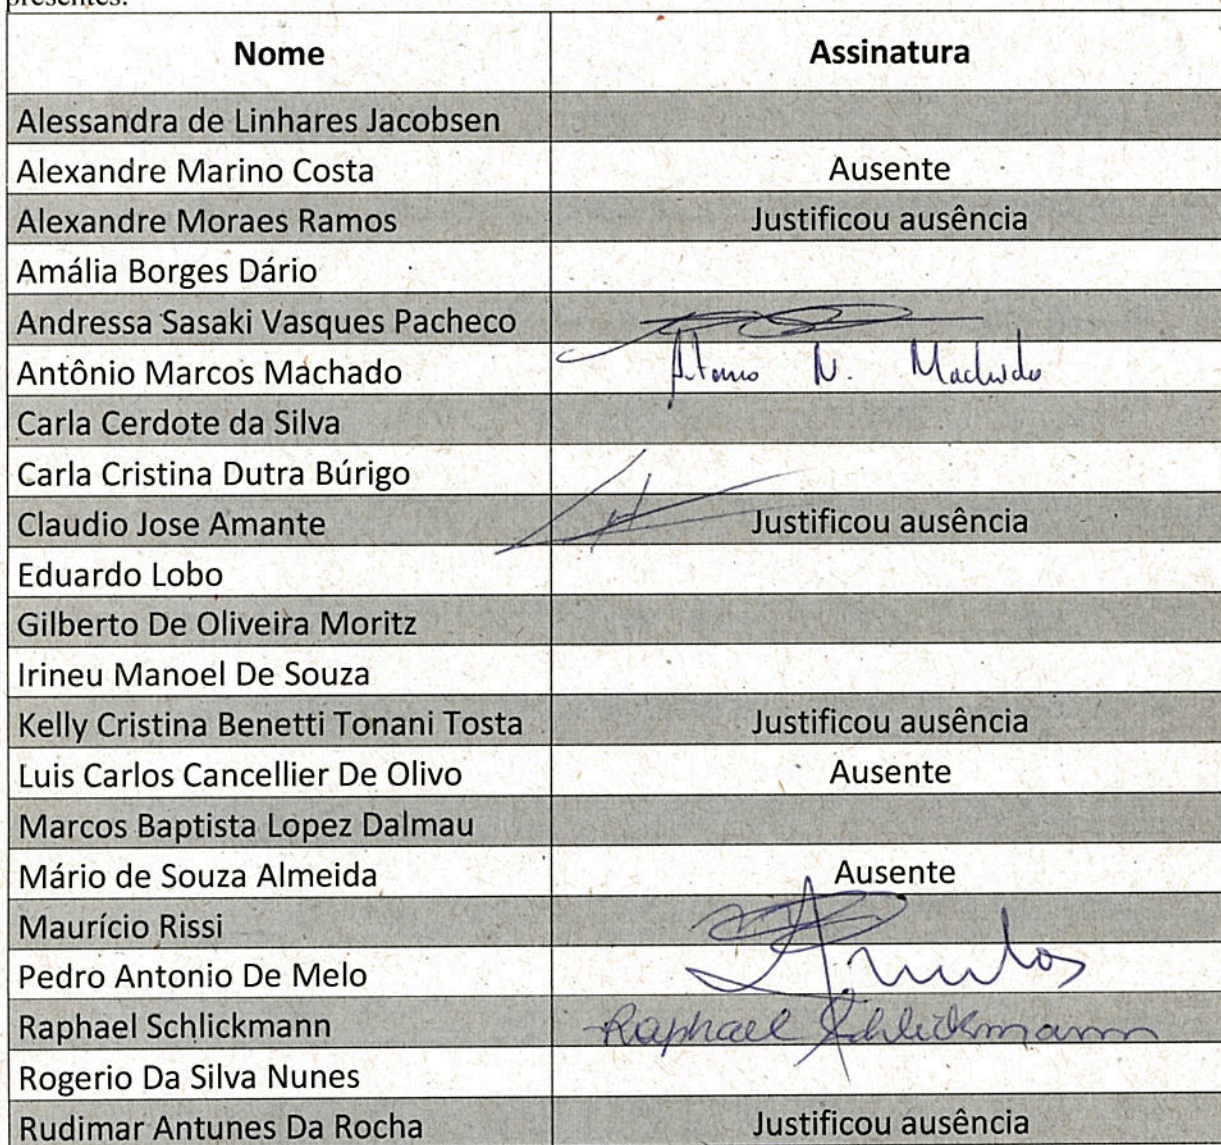 presentes.
Nome Assinatura
Alessandra de Linhares Jacobsen
Alexandre Marino Costa Ausente
Alexandre Moraes Ramos Justificou ausência
Amália Borges Dário
Andressa Sasaki Vasques Pacheco
Antônio Marcos Machado Antonio M. Machado
Carla Cerdote da Silva
Carla Cristina Dutra Búrigo
Claudio Jose Amante Justificou ausência
Eduardo Lobo
Gilberto De Oliveira Moritz
Irineu Manoel De Souza
Kelly Cristina Benetti Tonani Tosta Justificou ausência
Luis Carlos Cancellier De Olivo Ausente
Marcos Baptista Lopez Dalmau
Mário de Souza Almeida Ausente
Maurício Rissi
Pedro Antonio De Melo
Raphael Schlickmann Raphael Schlickmann
Rogerio Da Silva Nunes
Rudimar Antunes Da Rocha Justificou ausência